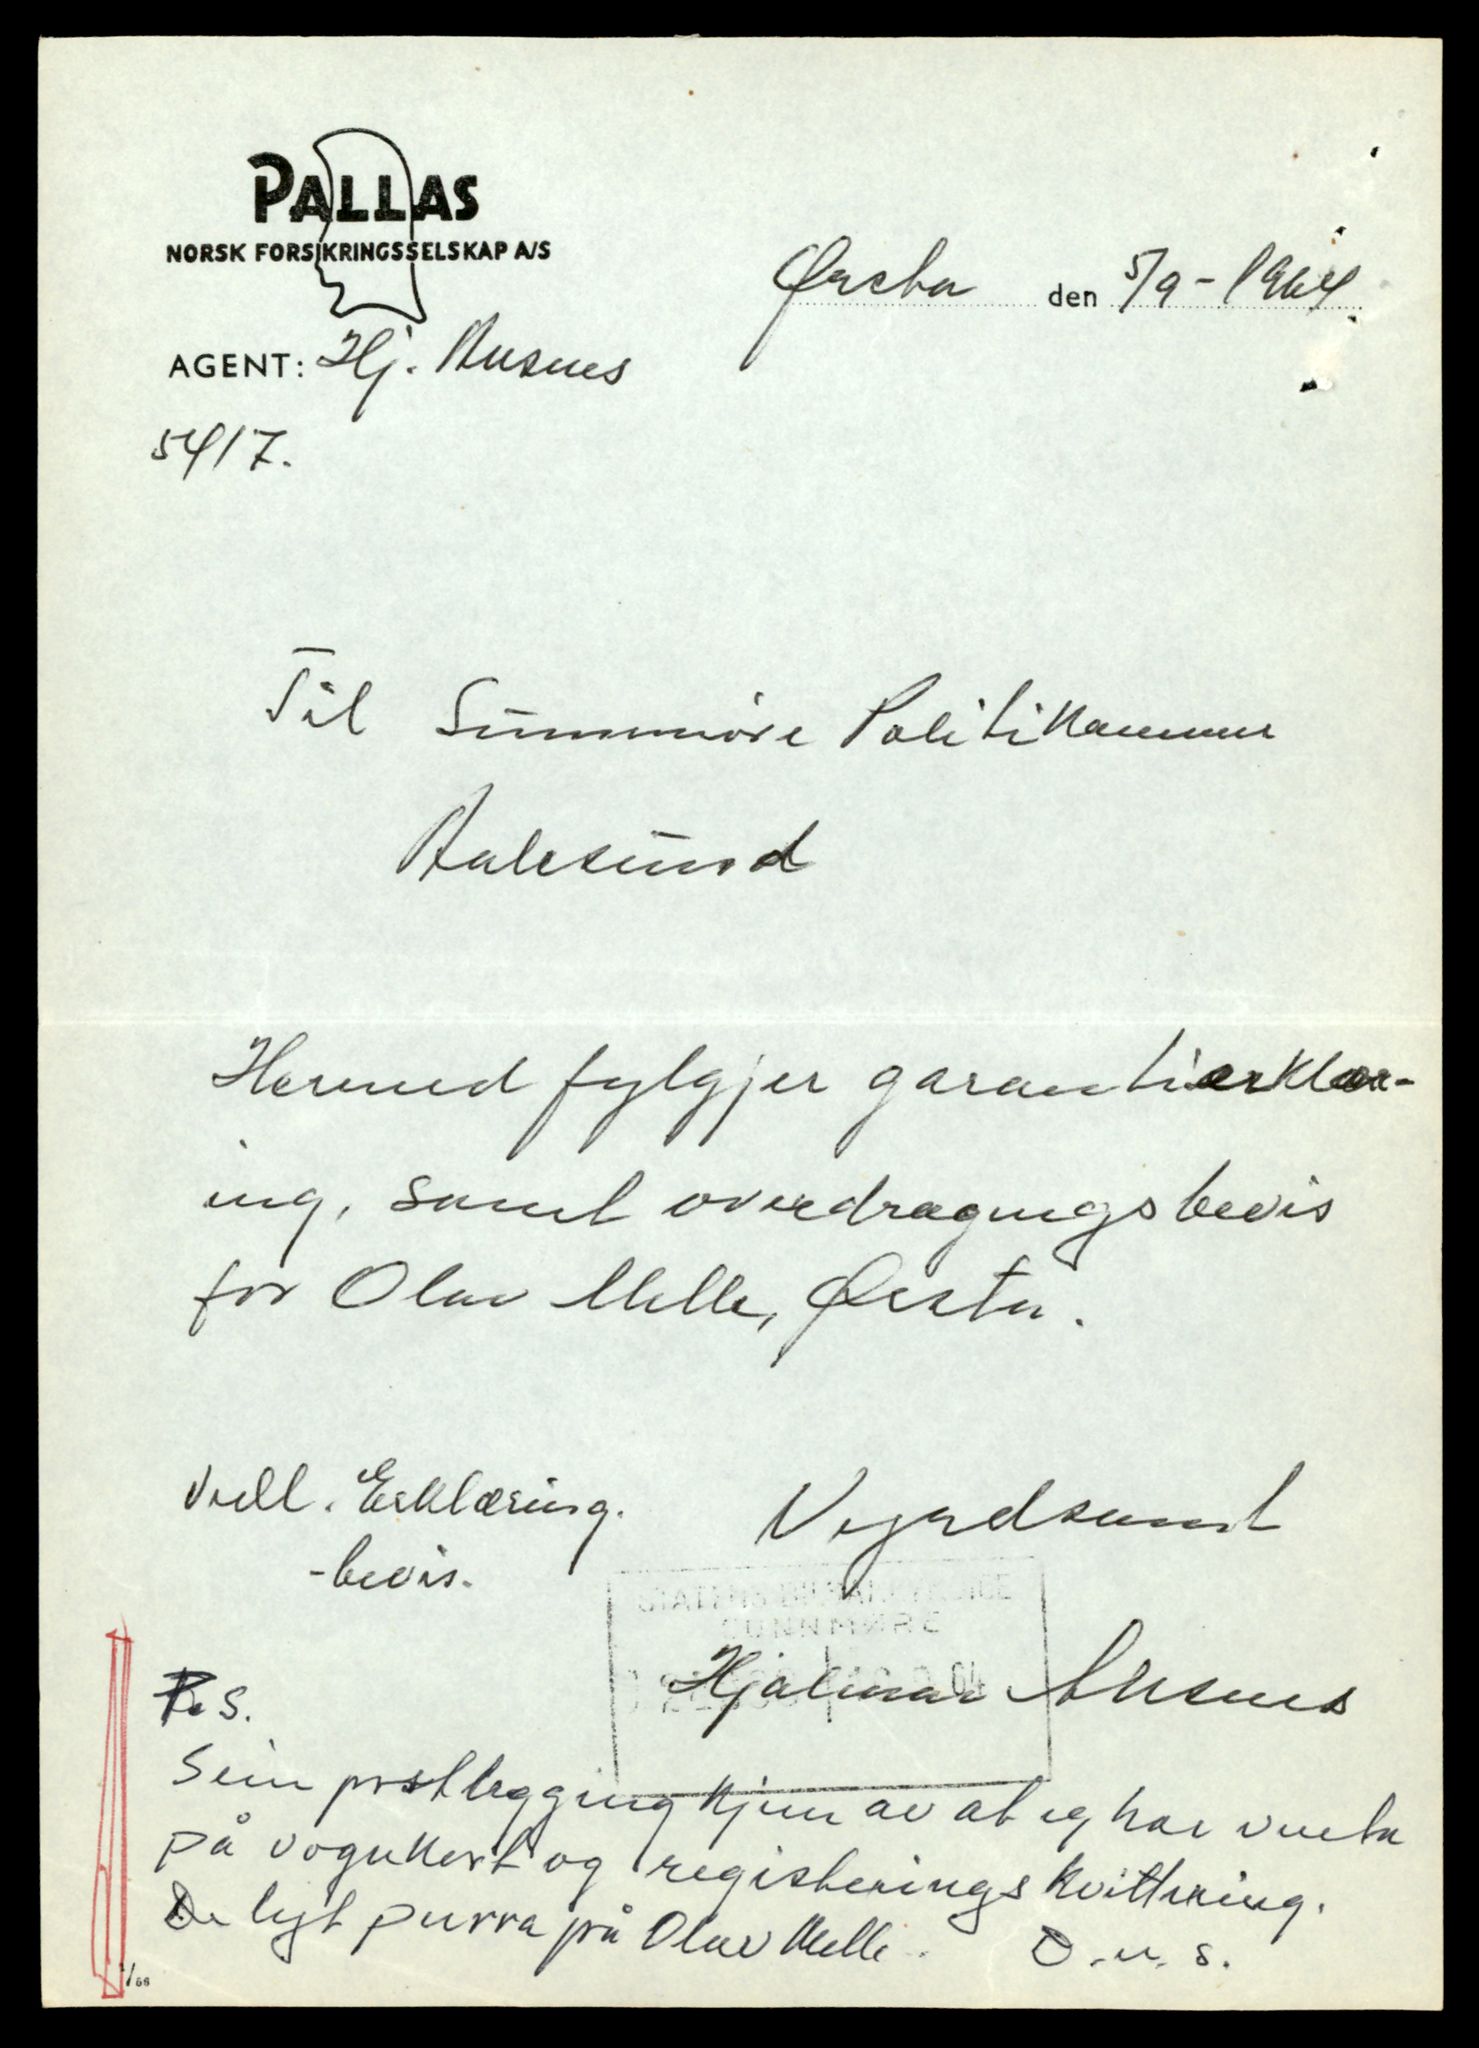 PALLAS
NORSK FORSIKRINGSSELSKAP A/S
Ørsta den 5/9-1964
AGENT: Hj. Aasnes
5417.
Til Sunnmöre Politikammer
Aalesund
Hermed fylgjer garantierklær-
ing, samt overdragingsbevis
for Olav Melle, Ørsta.
Vedl. Erklæring.
-bevis.
Vyrdsamt
STATENS BILSAKKYNDIGE
SUNNMØRE
Hjalmar Aasnes
P.S.
Sein postlegging kjem av at eg har venta
på vognkort og registreringskvittering.
De lyt purra på Olav Melle. D.u.s.